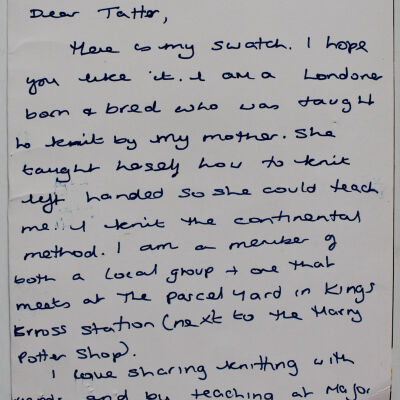 Dear Tatter,
Here is my swatch. I hope
you like it. I am a Londoner
born & bred who was taught
to knit by my mother. She
taught herself how to knit
left handed so she could teach
me. I knit the continental
method. I am a member of
both a local group + one that
meets at The Parcel Yard in Kings
Kross Station (next to the Harry
Potter Shop).
I love sharing knitting with
and by teaching at Major